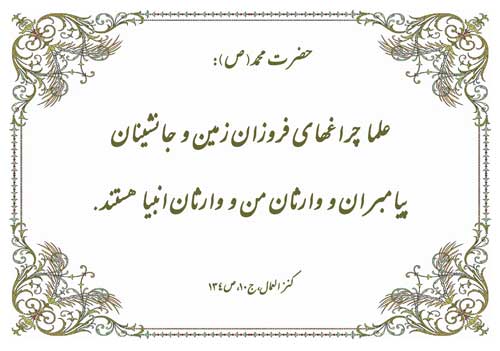 حضرت محمد(ص):
علما چراغهای فروزان زمین و جانشینان
پیامبران و وارثان من و وارثان انبیا هستند.
کنز العمال،ج۱۰،ص۱۳۴